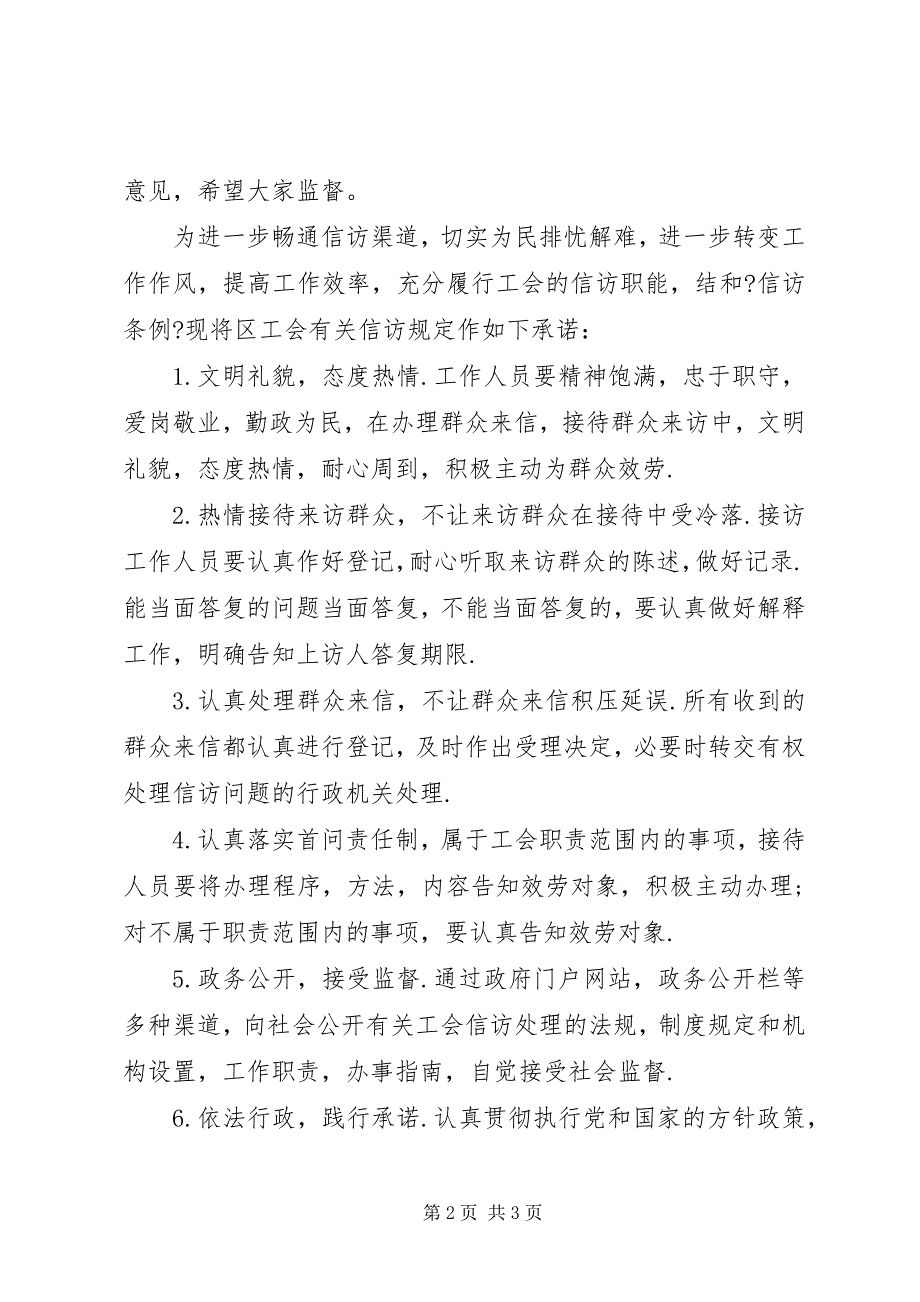 意见，希望大家监督。
为进一步畅通信访渠道，切实为民排忧解难，进一步转变工
作作风，提高工作效率，充分履行工会的信访职能，结和?信访
条例?现将区工会有关信访规定作如下承诺：
1.文明礼貌，态度热情.工作人员要精神饱满，忠于职守，
爱岗敬业，勤政为民，在办理群众来信，接待群众来访中，文明
礼貌，态度热情，耐心周到，积极主动为群众效劳.
2.热情接待来访群众，不让来访群众在接待中受冷落.接访
工作人员要认真作好登记，耐心听取来访群众的陈述，做好记录.
能当面答复的问题当面答复，不能当面答复的，要认真做好解释
工作，明确告知上访人答复期限.
3.认真处理群众来信，不让群众来信积压延误.所有收到的
群众来信都认真进行登记，及时作出受理决定，必要时转交有权
处理信访问题的行政机关处理.
4.认真落实首问责任制，属于工会职责范围内的事项，接待
人员要将办理程序，方法，内容告知效劳对象，积极主动办理;
对不属于职责范围内的事项，要认真告知效劳对象.
5.政务公开，接受监督.通过政府门户网站，政务公开栏等
多种渠道，向社会公开有关工会信访处理的法规，制度规定和机
构设置，工作职责，办事指南，自觉接受社会监督.
6.依法行政，践行承诺.认真贯彻执行党和国家的方针政策，
第 2 页 共 3 页